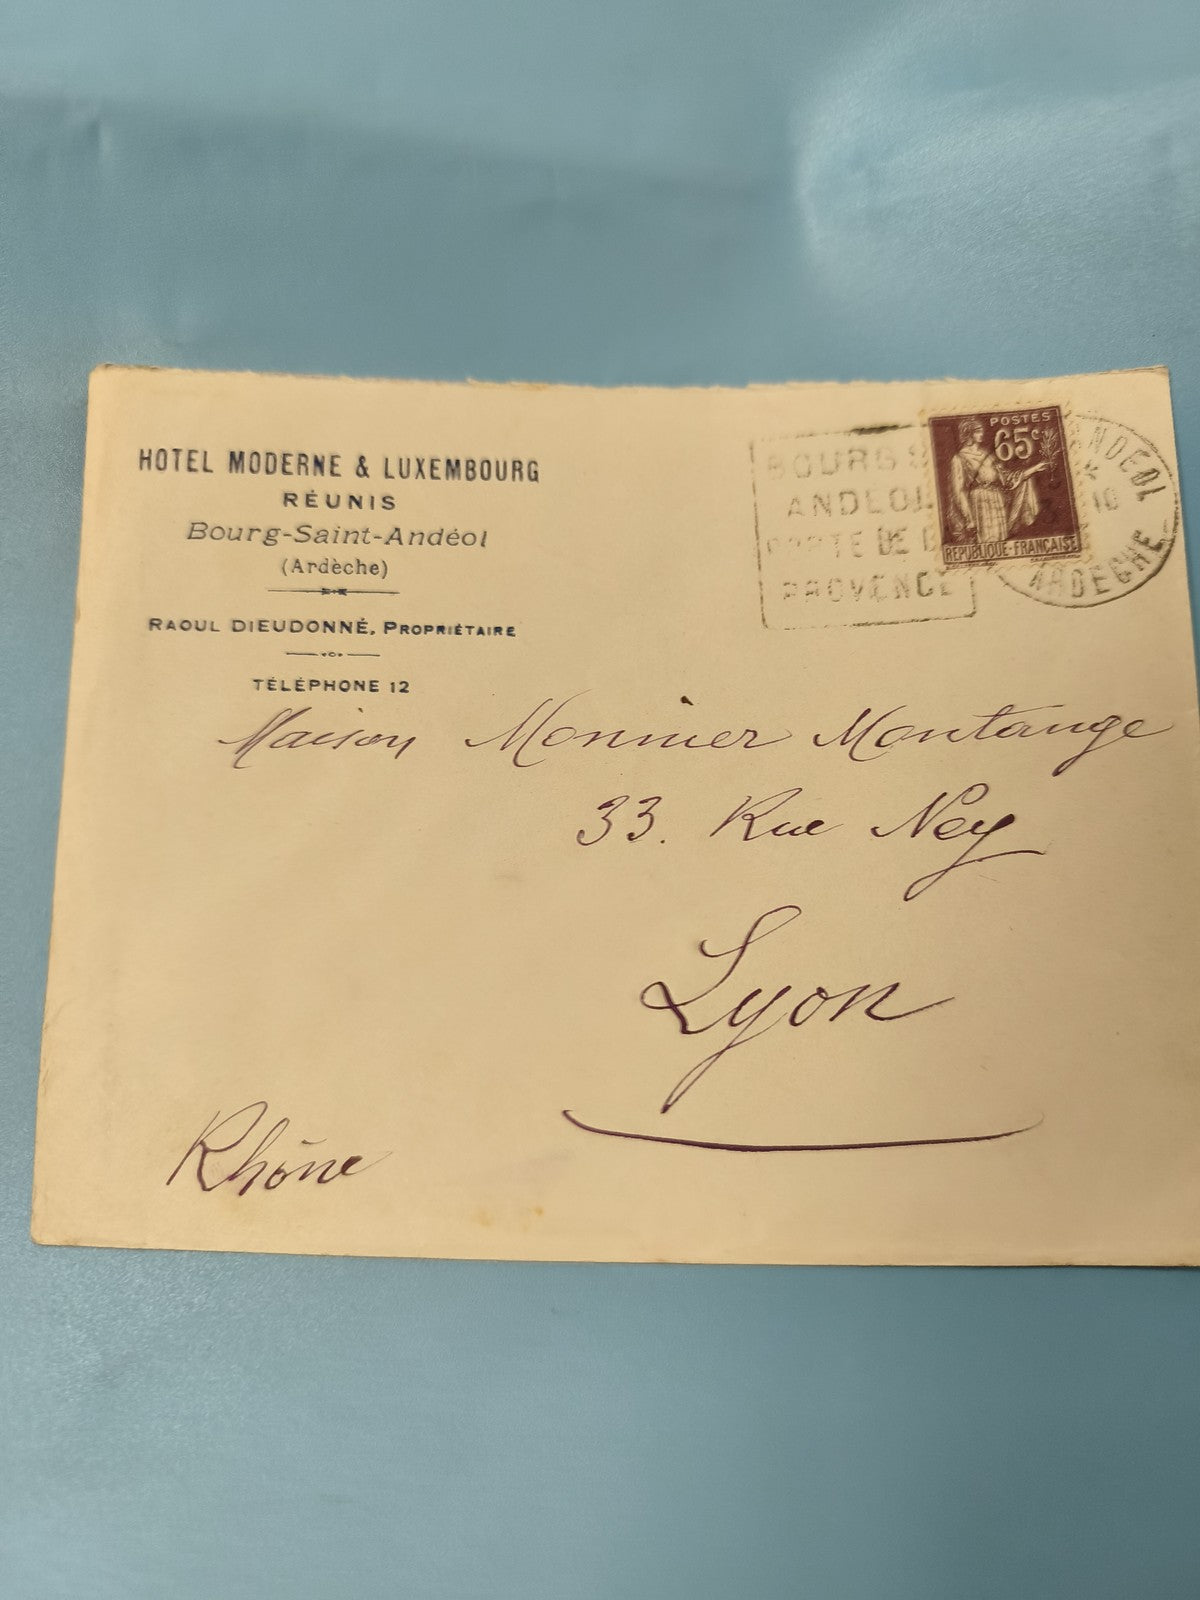 HOTEL MODERNE & LUXEMBOURG
RÉUNIS
Bourg-Saint-Andéol
(Ardèche)
RAOUL DIEUDONNÉ, PROPRIÉTAIRE
TÉLÉPHONE 12
BOURG S
ANDEOL
PORTE DE
PROVENCE
POSTES
65c
REPUBLIQUE-FRANÇAISE
ANDEOL
*
10
ARDECHE
Maison Monnier Montange
33. Rue Ney
Lyon
Rhône